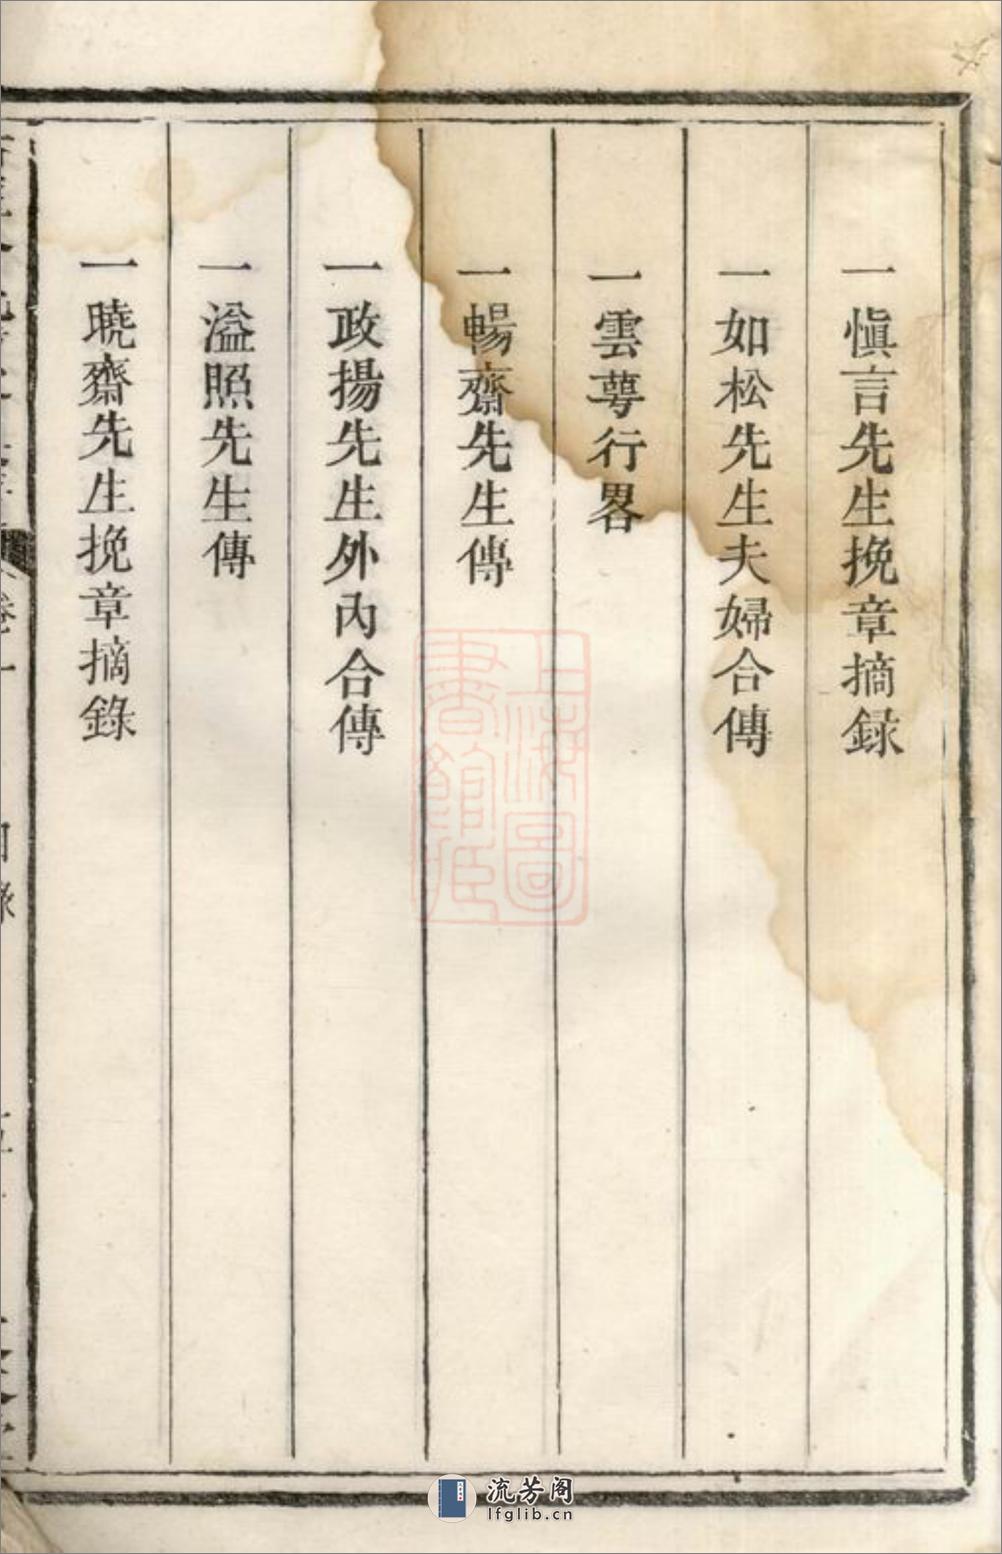 一愼言先生挽章摘録
一如松先生夫婦合傳
一雲蕚行畧
一暢齋先生傳
一政揚先生外內合傳
一溢照先生傳
一曉齋先生挽章摘錄
卷一
目錄
五
上海圖
書館藏
流芳阁
lfglib.cn